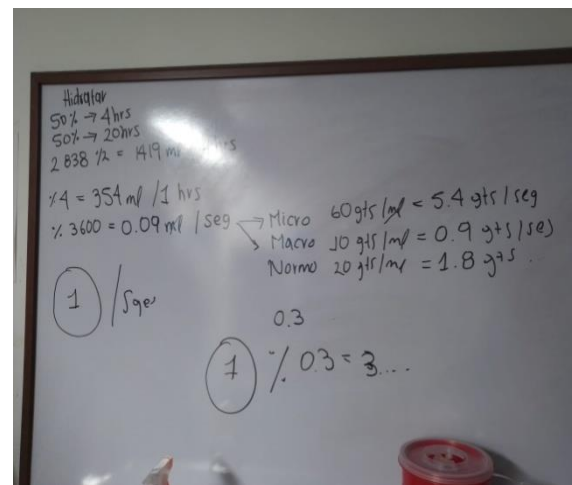 Hidratar
50% → 4hrs
50% → 20hrs
2 838 %2 = 1419 ml
%4 = 354 ml / 1 hrs
%. 3600 = 0.09 ml / seg → Micro 60 gts/ml = 5.4 gts / seg
Macro 10 gts/ml = 0.9 gts/seg
Normo 20 gts/ml = 1.8 gts
1 /
0.3
1 %. 0.3 = 3....